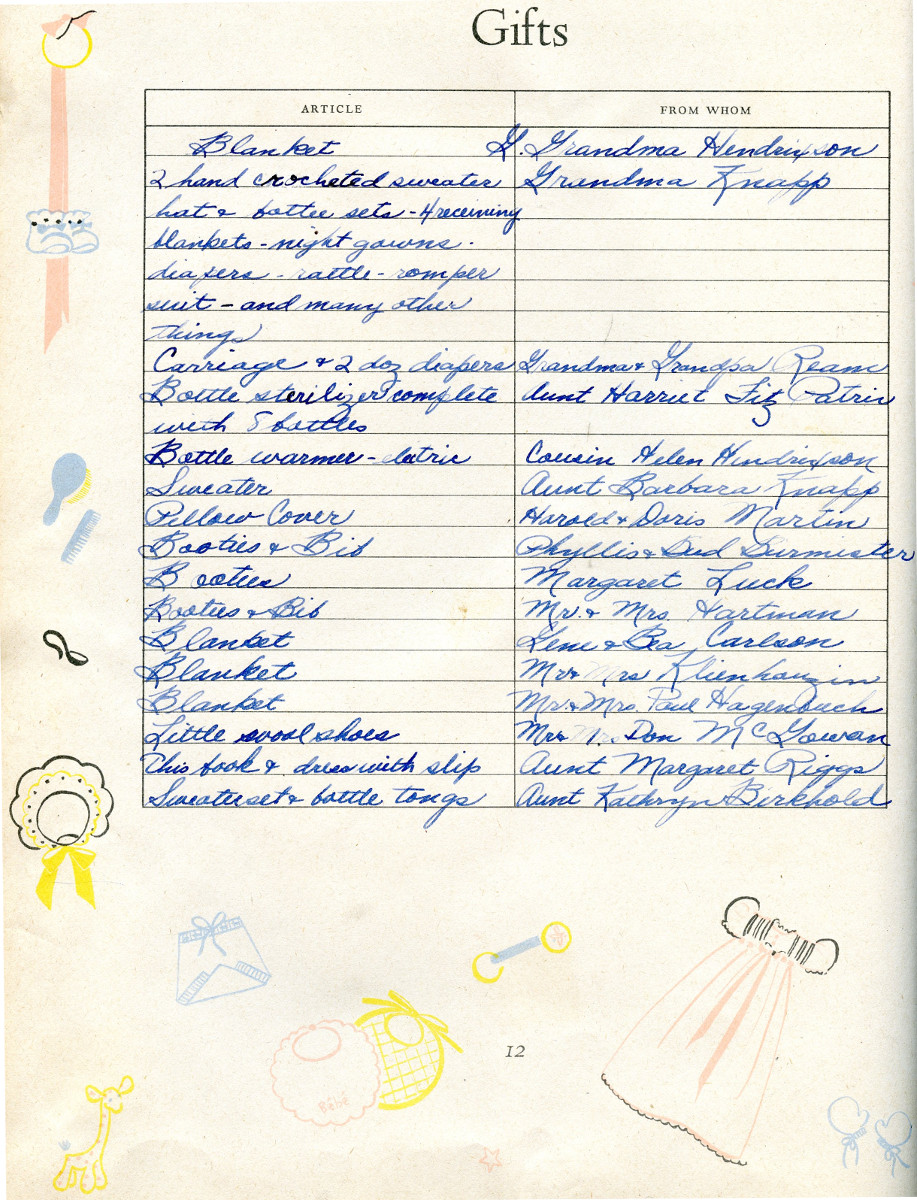 Gifts
ARTICLE FROM WHOM
Blanket G. Grandma Hendrixson
2 hand crocheted sweater Grandma Knapp
hat & bottee sets - 4 receiving
blankets - night gowns -
diapers - rattle - romper
suit - and many other
things
Carriage & 2 doz diapers Grandma & Grandpa Ream
Bottle sterilizer complete Aunt Harriet Fitz Patrick
with 8 bottles
Bottle warmer - eletric Cousin Helen Hendrixson
Sweater Aunt Barbara Knapp
Pillow Cover Harold & Doris Martin
Booties & Bib Phyllis & Dud Burmister
Booties Margaret Luck
Booties & Bib Mr. & Mrs. Hartman
Blanket Gene & Bea Carlson
Blanket Mr & Mrs
Blanket Mr. & Mrs. Paul Hagenbuch
Little wool shoes Mr & Mrs Don McGowan
This book & dress with slip Aunt Margaret Riggs
Sweater set & bottle tongs Aunt Kathryn Birkhold
Bébé
12